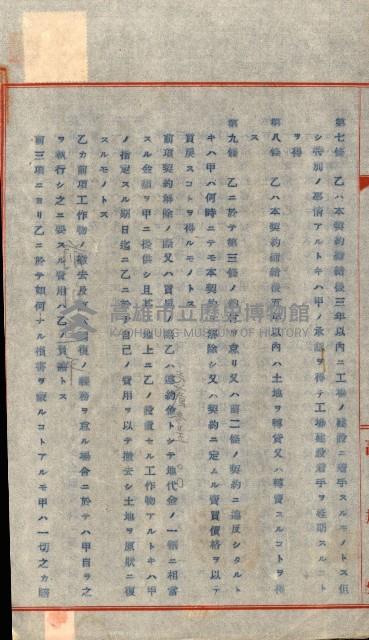 第七條 乙ハ本契約締結後三年以内ニ工場ノ建設ニ着手スルモノトス但
シ特別ノ事情アルトキハ甲ノ承認ヲ得テ工場建設着手ヲ延期スルコト
ヲ得
第八條 乙ハ本契約締結後五年以内ハ土地ヲ轉貸又ハ轉賣スルコトヲ得
ス
第九條 乙ニ於テ第三條ノ ヲ怠リ又ハ前二條ノ契約ニ違反シタルト
キハ甲ハ何時ニテモ本契約 解除シ又ハ契約ニ定ムル賣買價格ヲ以テ
買戻スコトヲ得ルモノトス
前項契約解除ノ際又ハ買戻 際乙ハ違約金トシテ地代金ノ一 ニ相當
スル金額ヲ甲ニ提供シ且其 地上ニ乙ノ設置セル工作物アルトキハ甲
ノ指定スル期日迄ニ乙ニ於 自己ノ費用ヲ以テ撤去シ土地ヲ原狀ニ復
スルモノトス
乙カ前項工作物 撤去及 復ノ義務ヲ怠ル場合ニ於テハ甲自ラ之
ヲ執行シ之ニ要スル費用ハ乙ノ負擔トス
前三項ニヨリ乙ニ於テ如何ナル損害ヲ蒙ルコトアルモ甲ハ一切之カ賠
高雄市立歷史博物館
KAOHSIUNG MUSEUM OF HISTORY